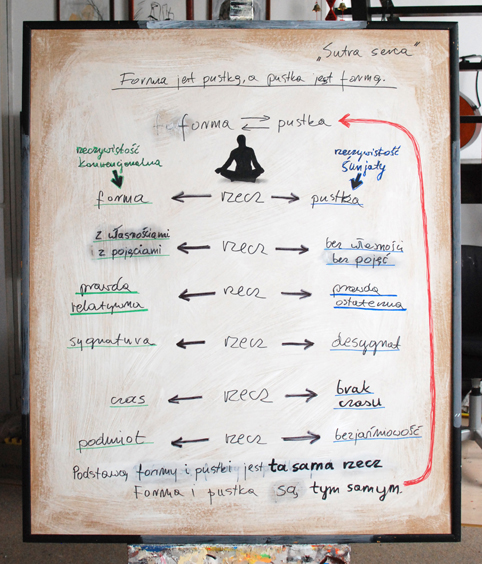 „Sutra serca"
Forma jest pustką, a pustka jest formą.
forma ⇄ pustka
rzeczywistość konwencjonalna
rzeczywistość śunjaty
forma ← rzecz → pustka
z własnościami z pojęciami ← rzecz → bez własności bez pojęć
prawda relatywna ← rzecz → prawda ostateczna
sygnatura ← rzecz → desygnat
czas ← rzecz → brak czasu
podmiot ← rzecz → bezjaźniowość
Podstawą formy i pustki jest ta sama rzecz
Forma i pustka są tym samym.